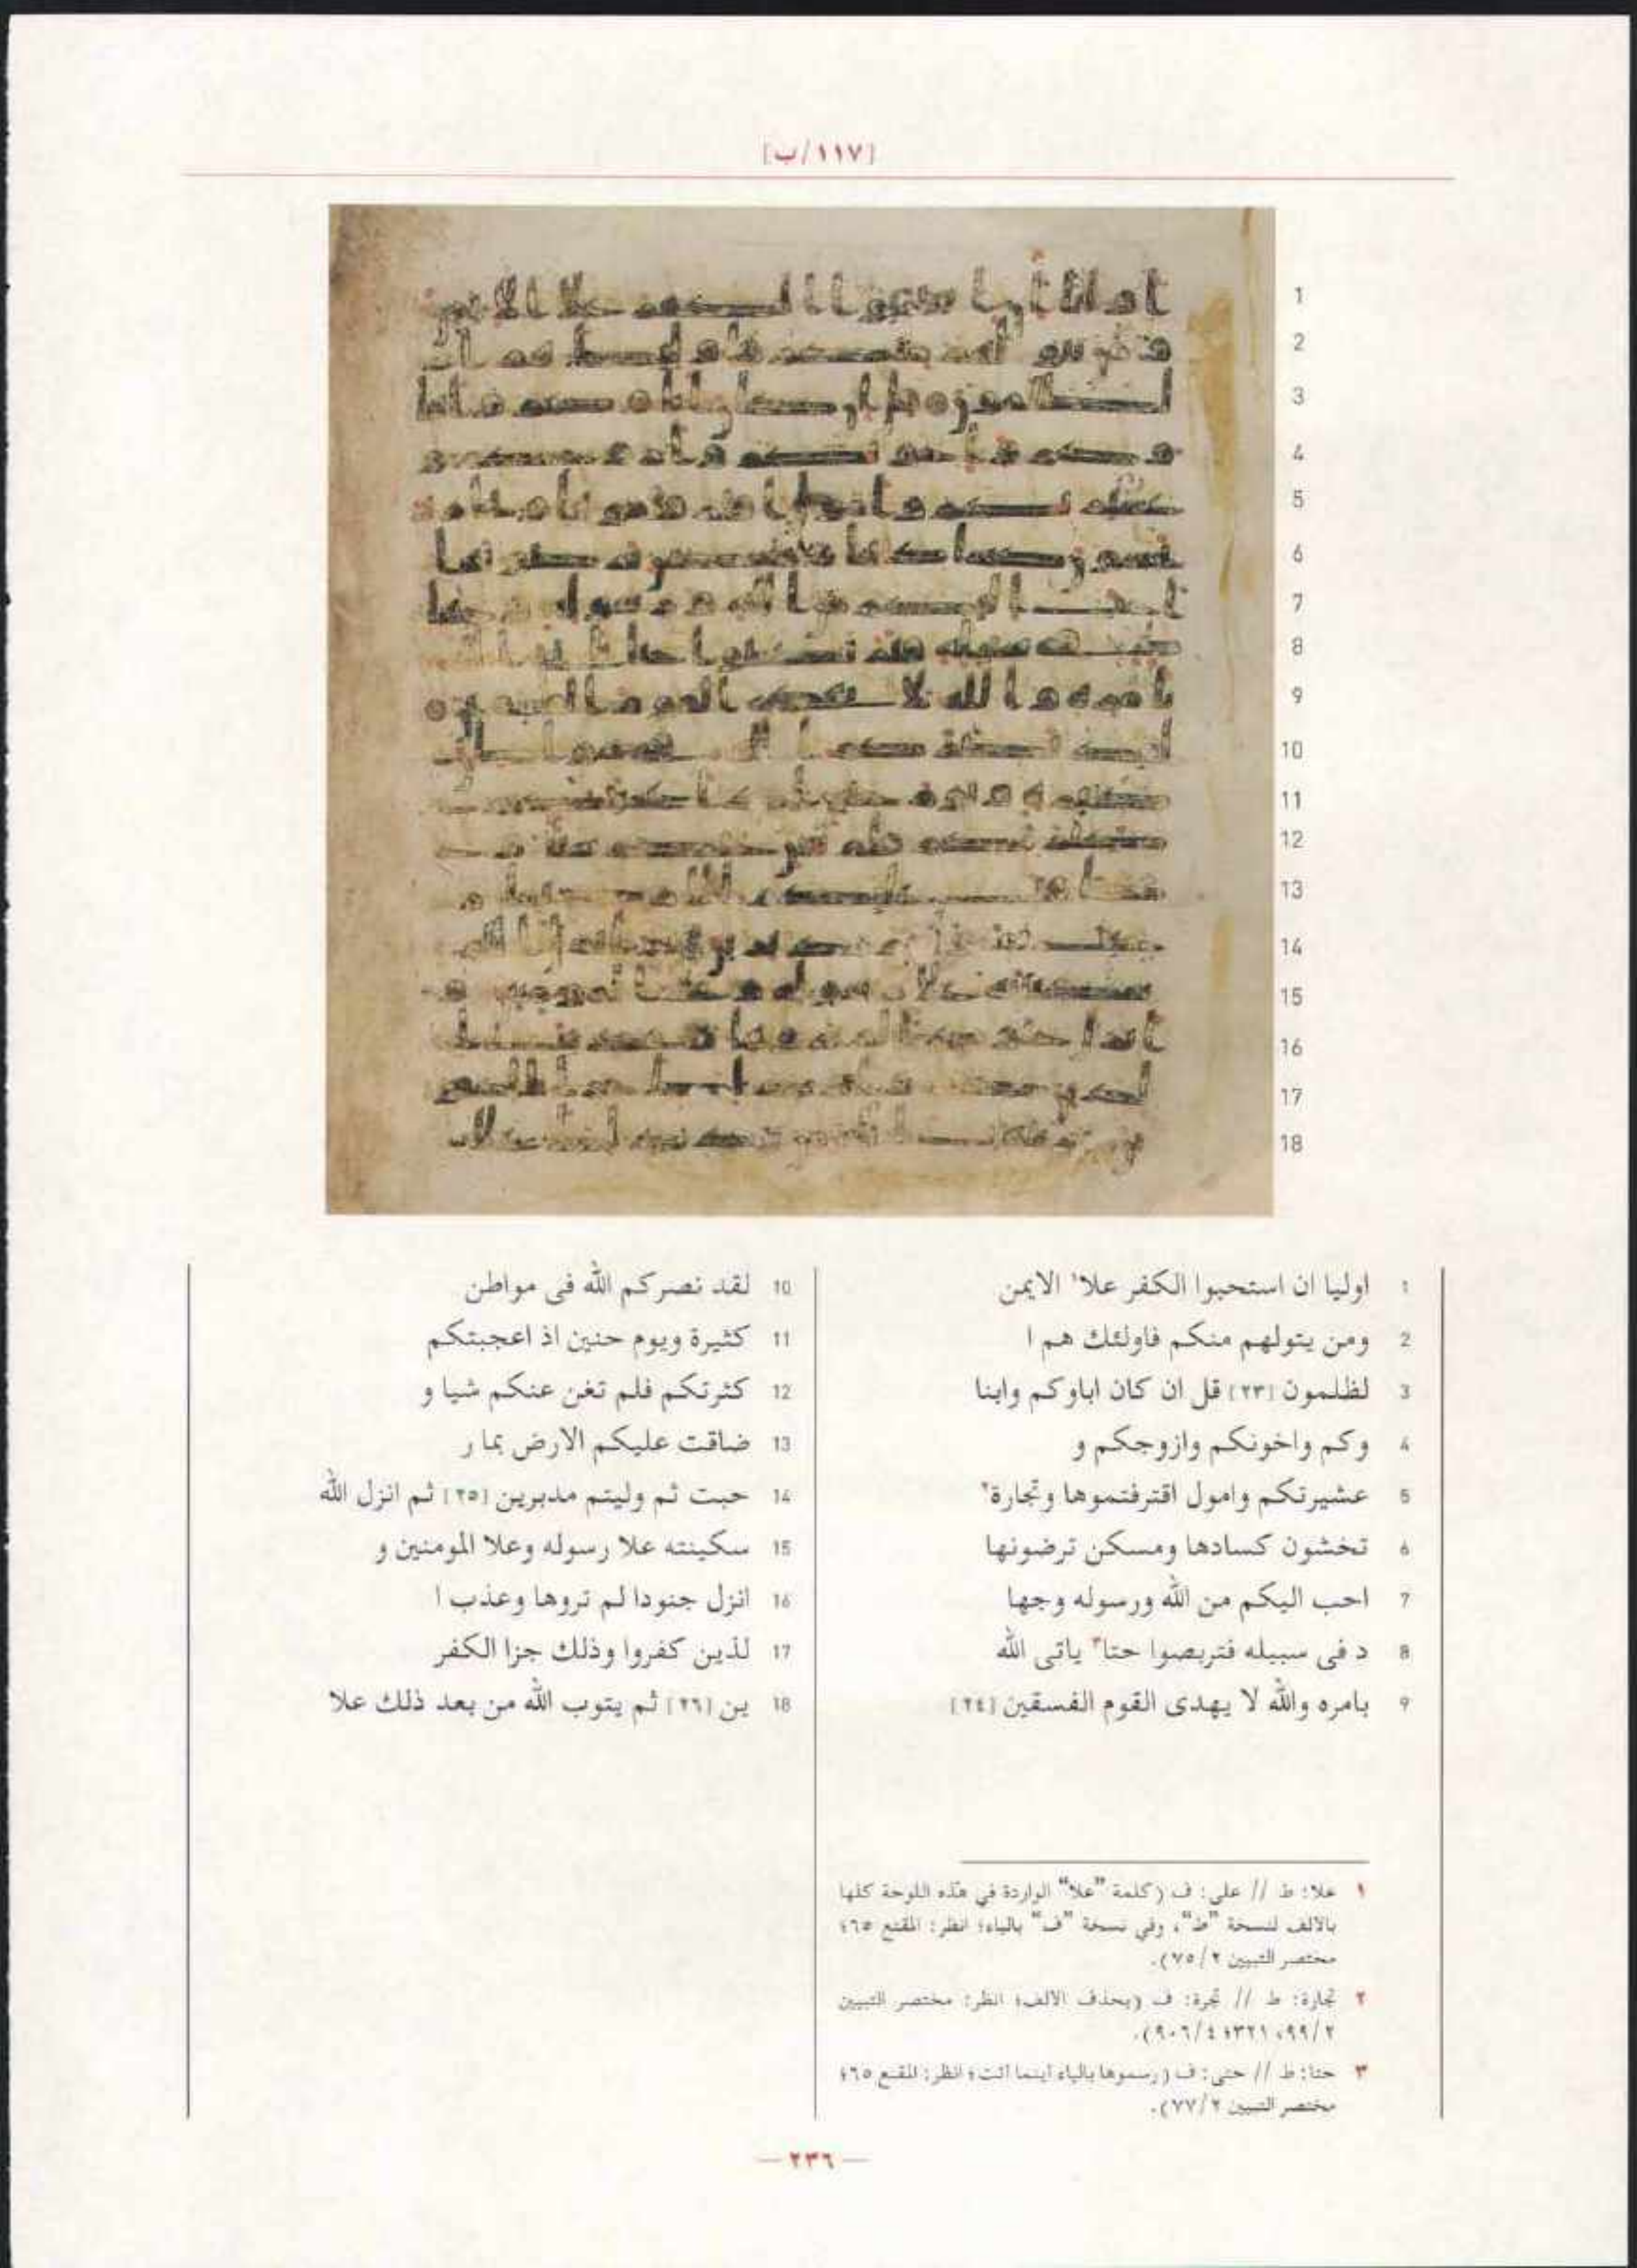 [١١٧/ب]
1 اوليا ان استحبوا الكفر علا١ الايمن
2 ومن يتولهم منكم فاولئك هم ا
3 لظلمون [٢٣] قل ان كان اباوكم وابنا
4 وكم واخونكم وازوجكم و
5 عشيرتكم وامول اقترفتموها وتجارة٢
6 تخشون كسادها ومسكن ترضونها
7 احب اليكم من الله ورسوله وجها
8 د فى سبيله فتربصوا حتا٣ ياتى الله
9 بامره والله لا يهدى القوم الفسقين [٢٤]
10 لقد نصركم الله فى مواطن
11 كثيرة ويوم حنين اذ اعجبتكم
12 كثرتكم فلم تغن عنكم شيا و
13 ضاقت عليكم الارض بما ر
14 حبت ثم وليتم مدبرين [٢٥] ثم انزل الله
15 سكينته علا رسوله وعلا المومنين و
16 انزل جنودا لم تروها وعذب ا
17 لذين كفروا وذلك جزا الكفر
18 ين [٢٦] ثم يتوب الله من بعد ذلك علا
١ علا: ط // على: ف (كلمة "علا" الواردة في هذه اللوحة كلها
بالالف لنسخة "ط"، وفي نسخة "ف" بالياء؛ انظر: المقنع ٦٥؛
مختصر التبيين ٢/ ٧٥).
٢ تجارة: ط // تجرة: ف (بحذف الالف؛ انظر: مختصر التبيين
٢/ ٩٩، ٣٢١؛ ٤/ ٩٠٦).
٣ حتا: ط // حتى: ف (رسموها بالياء اينما اتت؛ انظر: المقنع ٦٥؛
مختصر التبيين ٢/ ٧٧).
— ٢٣٦ —